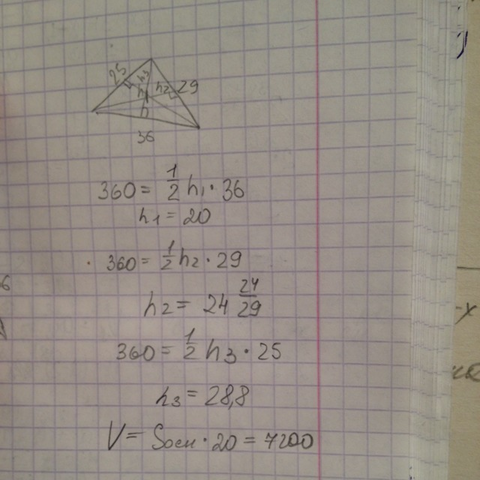 25 h3 h2 29
h
36
360 = 1/2 h1 · 36
h1 = 20
360 = 1/2 h2 · 29
h2 = 24 24/29
360 = 1/2 h3 · 25
h3 = 28,8
V = Sосн · 20 = 7200